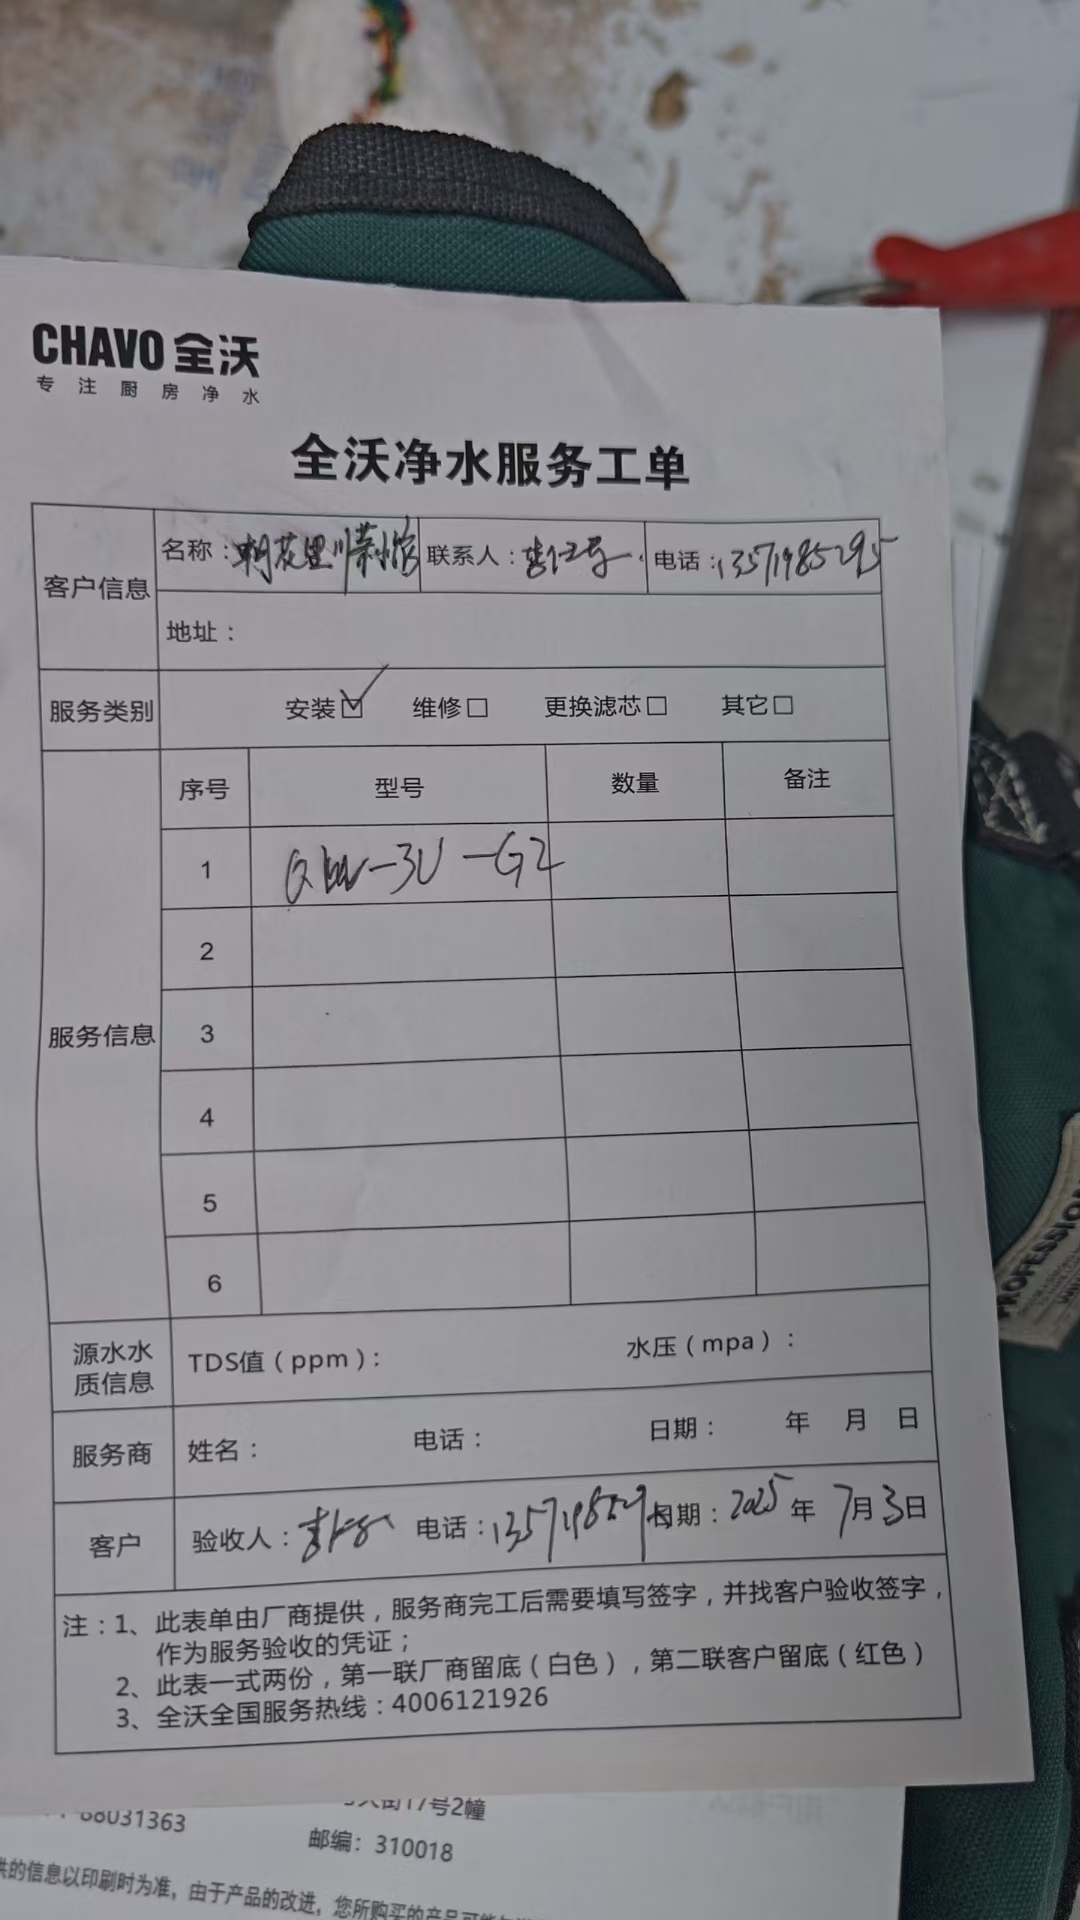 CHAVO 全沃
专注厨房净水
全沃净水服务工单
客户信息
名称：朝花里川菜馆 联系人： 电话：13571985295
地址：
服务类别 安装☑ 维修□ 更换滤芯□ 其它□
服务信息
序号 型号 数量 备注
1 -3U-G2
2
3
4
5
6
源水水质信息 TDS值（ppm）： 水压（mpa）：
服务商 姓名： 电话： 日期： 年 月 日
客户 验收人： 电话： 日期：2025年7月3日
注：1、此表单由厂商提供，服务商完工后需要填写签字，并找客户验收签字，
作为服务验收的凭证；
2、此表一式两份，第一联厂商留底（白色），第二联客户留底（红色）
3、全沃全国服务热线：4006121926
88031363
大街17号2幢
邮编：310018
的信息以印刷时为准，由于产品的改进，您所购买的产品可能
PROFESSION